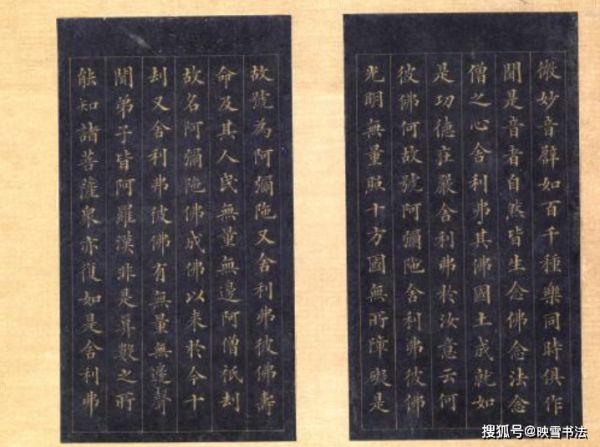 微妙音譬如百千種樂同時俱作
聞是音者自然皆生念佛念法念
僧之心舍利弗其佛國土成就如
是功德莊嚴舍利弗於汝意云何
彼佛何故號阿彌陁舍利弗彼佛
光明無量照十方國無所障礙是
故號為阿彌陁又舍利弗彼佛壽
命及其人民無量無邊阿僧祇刧
故名阿彌陁佛成佛以来於今十
刧又舍利弗彼佛有無量無邊聲
聞弟子皆阿羅漢非是筭數之所
能知諸菩薩眾亦復如是舍利弗
搜狐号@映雪书法